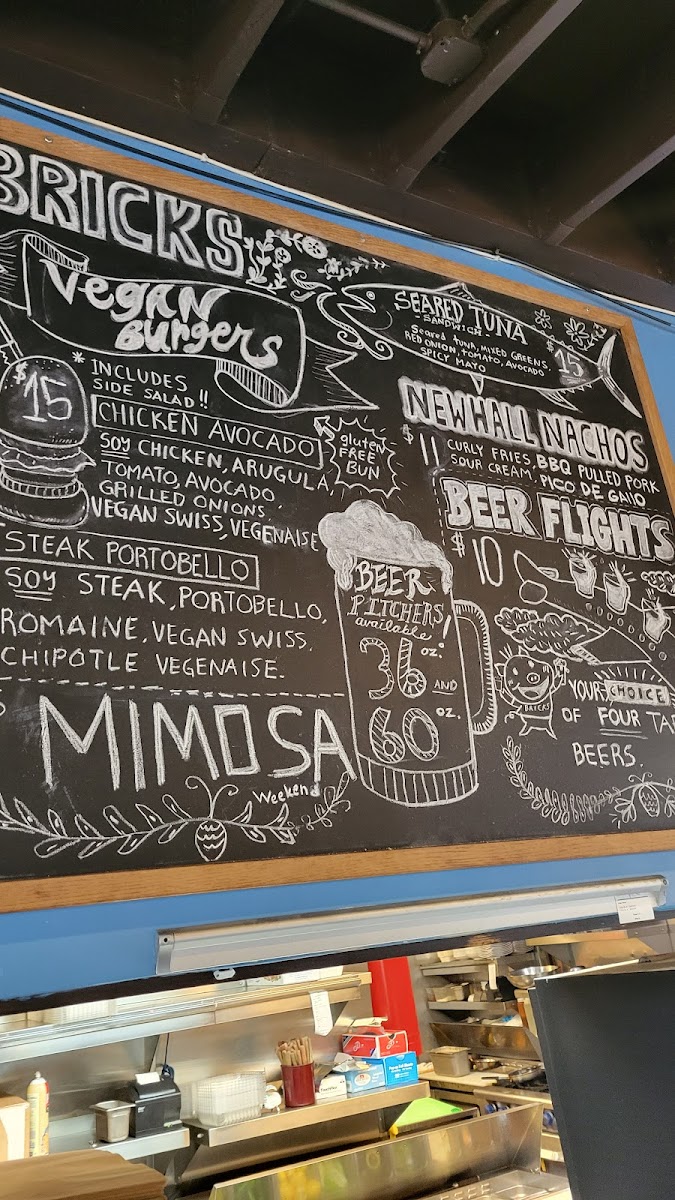 BRICKS
Vegan
Burgers
$15
* INCLUDES
SIDE SALAD!!
CHICKEN AVOCADO
SOY CHICKEN, ARUGULA,
TOMATO, AVOCADO,
GRILLED ONIONS,
VEGAN SWISS, VEGENAISE
gluten
FREE
BUN
STEAK PORTOBELLO
SOY STEAK, PORTOBELLO,
ROMAINE, VEGAN SWISS,
CHIPOTLE VEGENAISE.
MIMOSA
Weekend
SEARED TUNA
- SANDWICH -
Seared tuna, MIXED GREENS,
RED ONION, TOMATO, AVOCADO
SPICY MAYO
$15
NEWHALL NACHOS
$11
CURLY FRIES, BBQ PULLED PORK
SOUR CREAM, PICO DE GALLO
BEER FLIGHTS
$10
BRICKS
YOUR CHOICE
OF FOUR TA
BEERS.
BEER
PITCHERS
available!
36 oz.
AND
60 oz.